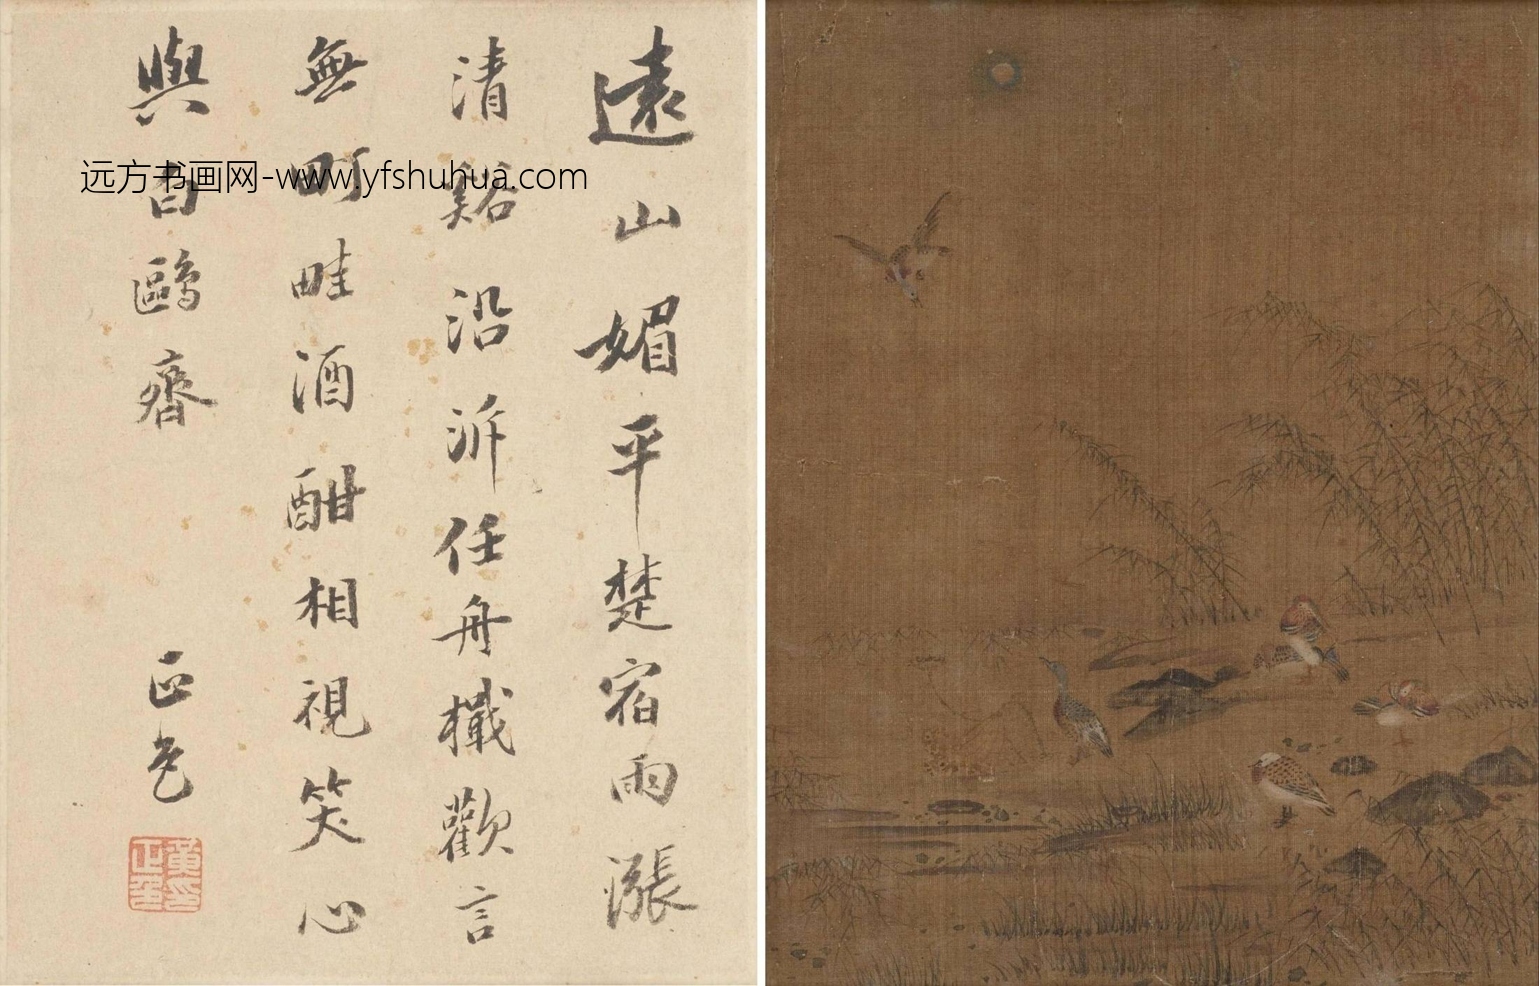 遠山媚平楚宿雨漲
清谿沿泝任舟檝歡言
無町畦酒酣相視笑心
與白鷗齊
正色
黃印正色
远方书画网-www.yfshuhua.com